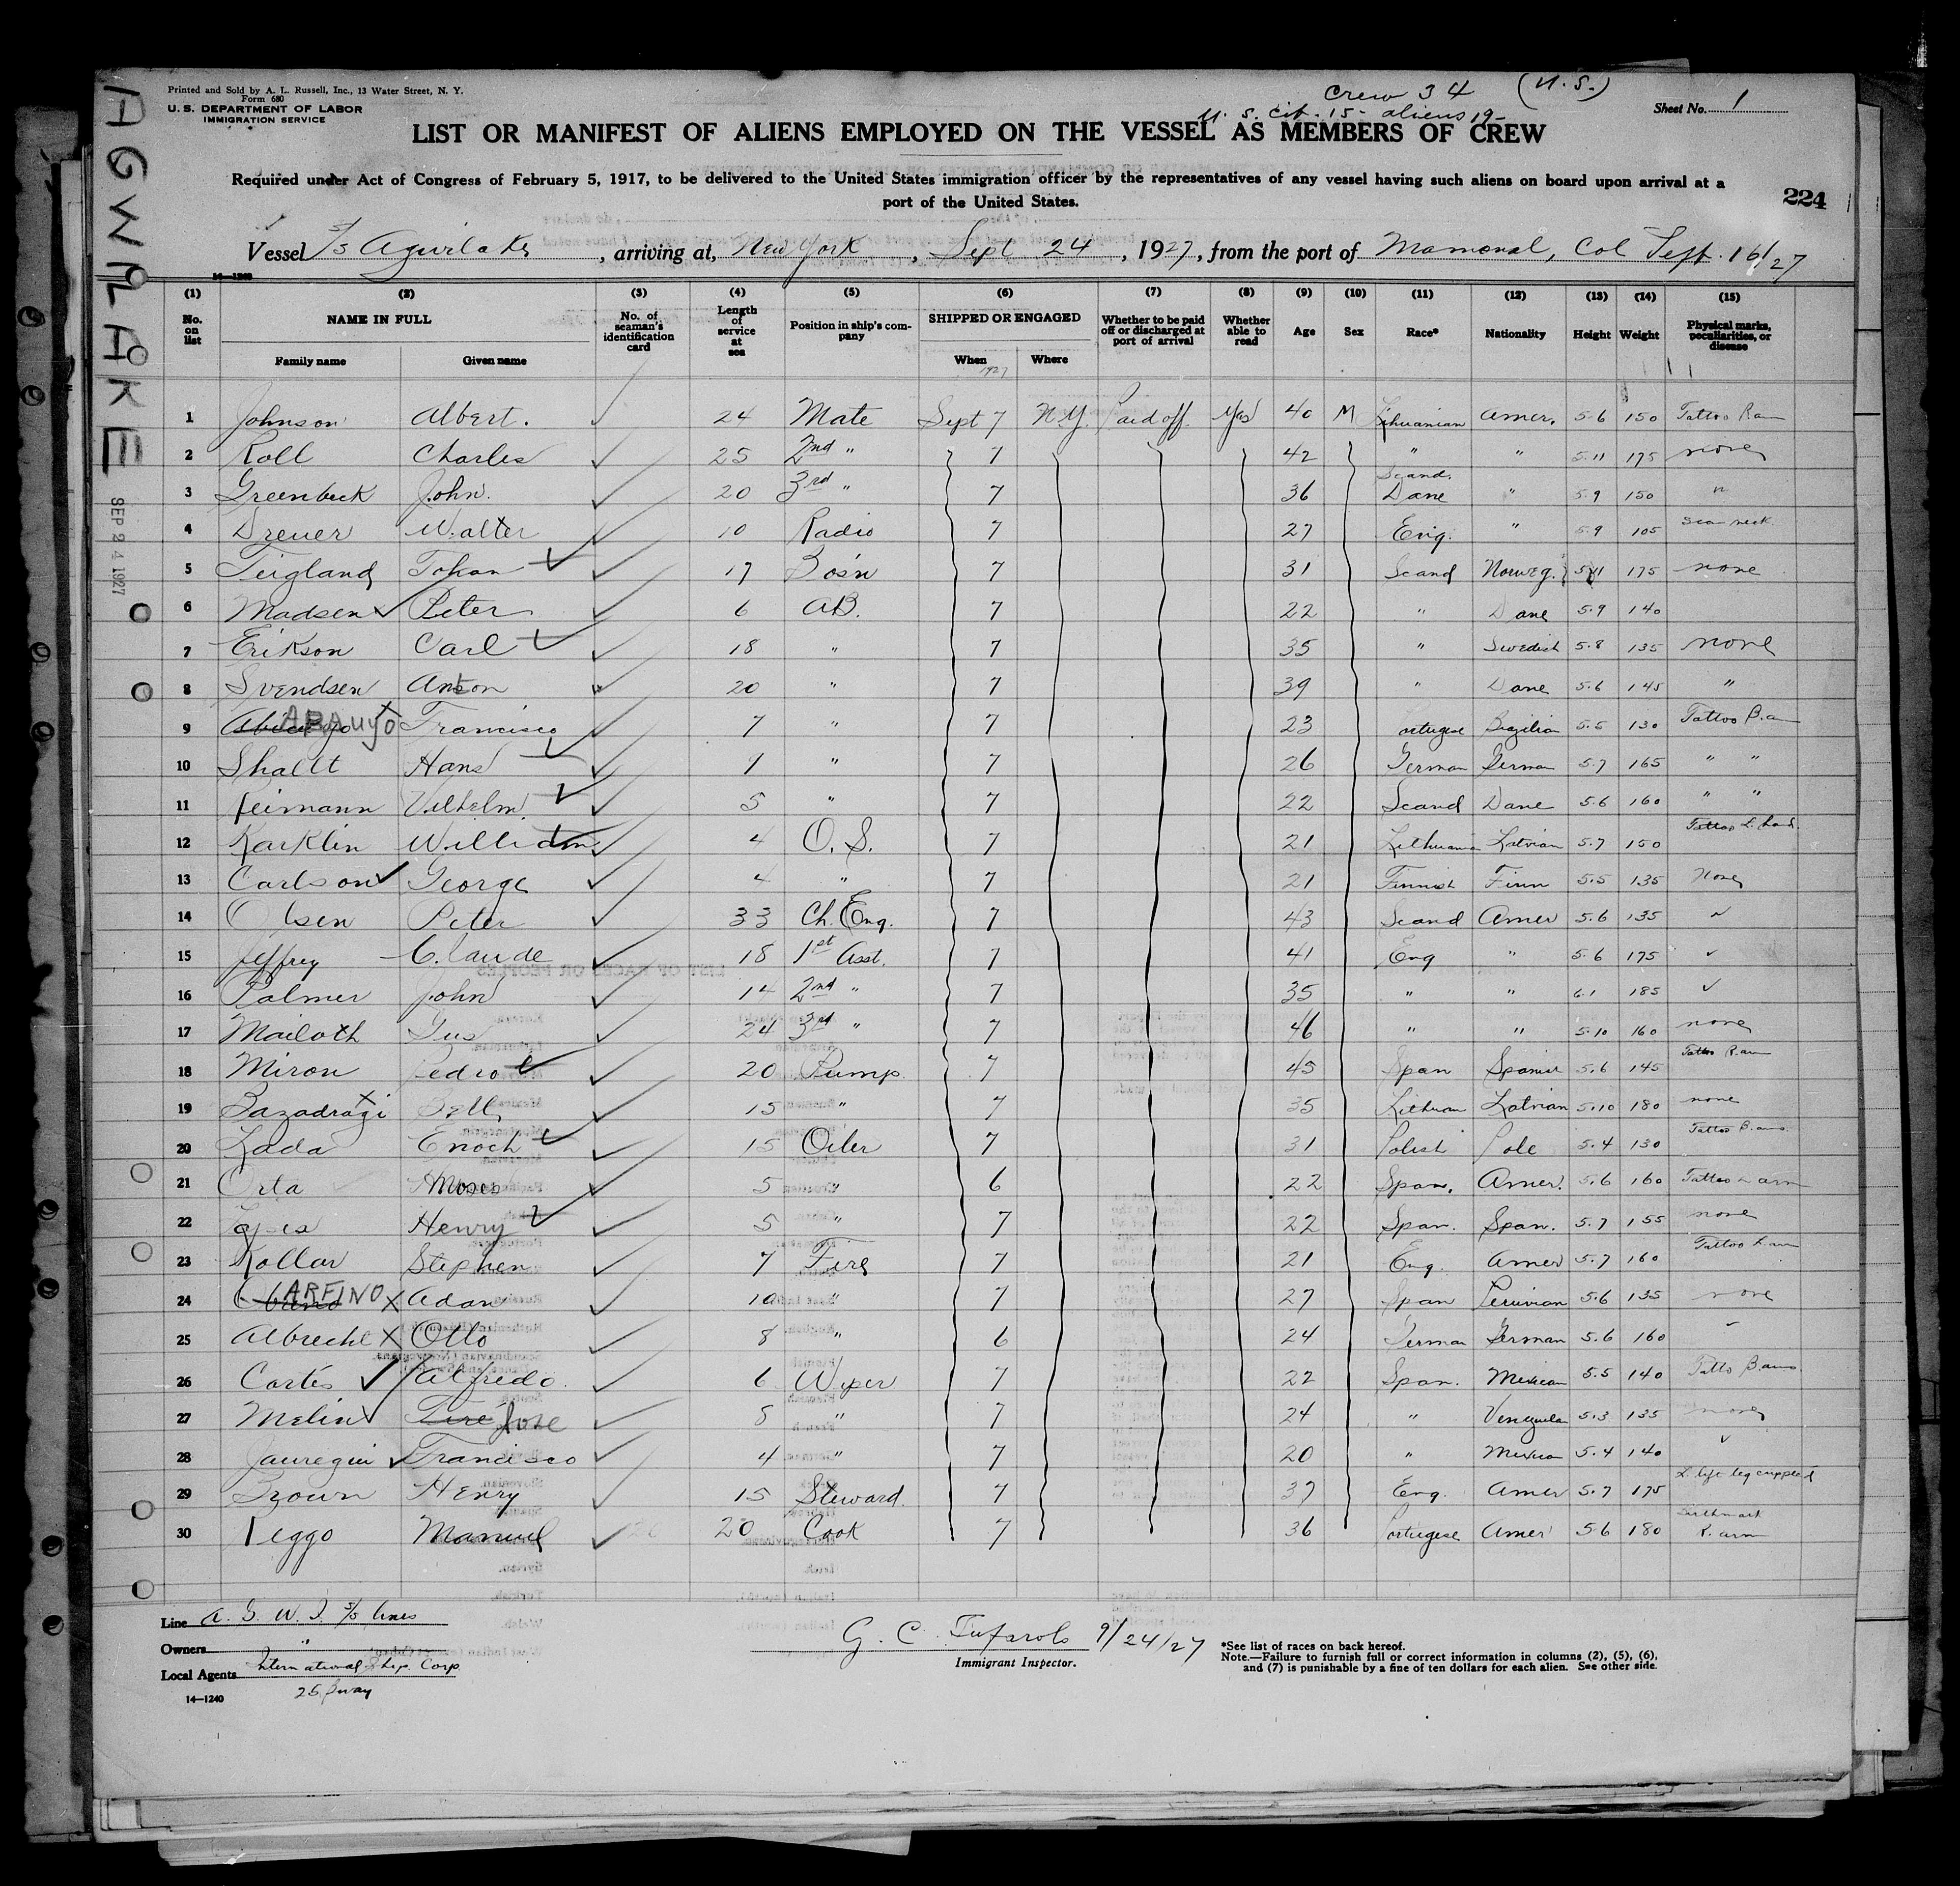 Printed and Sold by A. L. Russell, Inc., 13 Water Street, N. Y.
Form 680
U. S. DEPARTMENT OF LABOR
IMMIGRATION SERVICE
Crew 34 (U.S.)
U. S. Cit. 15- aliens 19-
Sheet No. 1
LIST OR MANIFEST OF ALIENS EMPLOYED ON THE VESSEL AS MEMBERS OF CREW
Required under Act of Congress of February 5, 1917, to be delivered to the United States immigration officer by the representatives of any vessel having such aliens on board upon arrival at a
port of the United States.
224
AGWILAKE
SEP 24 1927
Vessel S/S Agwilake, arriving at, New York, Sept 24, 1927, from the port of Mamonal, Col Sept. 16/27
14-1240
(1) (2) (3) (4) (5) (6) (7) (8) (9) (10) (11) (12) (13) (14) (15)
No. on list NAME IN FULL Family name Given name No. of seaman's identification card Length of service at sea Position in ship's company SHIPPED OR ENGAGED When 1927 Where Whether to be paid off or discharged at port of arrival Whether able to read Age Sex Race* Nationality Height Weight Physical marks, peculiarities, or disease
1 Johnson Albert. 24 Mate Sept 7 N.Y. Paid off Yes 40 M Lithuanian Amer. 5 6 150 Tattoo R. arm
2 Roll Charles 25 2nd " 7 42 " " 5.11 175 none
3 Greenbeck John. 20 3rd " 7 36 Scand. Dane " 5.9 150 "
4 Dreuer Walter 10 Radio 7 27 Eng. " 5.9 105 Scar neck.
5 Teigland Johan 17 Bos'n 7 31 Scand Norweg. 5 11 175 none
6 Madsen Peter 6 AB. 7 22 " Dane 5.9 140
7 Erikson Carl 18 " 7 35 " Swedish 5.8 135 none
8 Svendsen Anton 20 " 7 39 " Dane 5.6 145 "
9 ARAUJO Francisco 7 " 7 23 Portugese Brazilian 5.5 130 Tattoo B. a
10 Shallt Hans 1 " 7 26 German German 5.7 165 " "
11 Vilhelm. 5 " 7 22 Scand Dane 5.6 160 " "
12 Karklin William 4 O. S. 7 21 Lithuania Latvian 5.7 150 Tattoo L. hand.
13 Carlson George 4 " 7 21 Finnish Finn 5.5 135 None
14 Olsen Peter 33 Ch. Eng. 7 43 Scand Amer 5.6 135 "
15 Jeffrey Claude 18 1st Asst. 7 41 Eng " 5.6 175 "
16 Palmer John 14 2nd " 7 35 " " 6.1 185 "
17 Mailoth Gus 24 3rd " 7 46 " " 5.10 160 none
18 Miron Pedro 20 Pump. 7 45 Span Spanish 5.6 145 Tattoo R. arm
19 Bazadragi 15 " 7 35 Lithuan Latvian 5.10 180 none
20 Lada Enoch 15 Oiler 7 31 Polish Pole 5.4 130 Tattoo B. arms.
21 Orta Moses 5 " 6 22 Span. Amer. 5.6 160 Tattoo L arm
22 Henry 5 " 7 22 Span. Span. 5.7 155 none
23 Kollar Stephen 7 Fire 7 21 Eng. Amer 5.7 160 Tattoo L. arm
24 ARFINO Adan 10 " 7 27 Span Peruvian 5.6 135 none
25 Albrecht Otto 8 " 6 24 German German 5.6 160 "
26 Cortés Alfredo. 6 Wiper 7 22 Span. Mexican 5.5 140 Tatto B. arms.
27 Melin Jose 8 " 7 24 " Venezuelan 5.3 135 none
28 Jauregui Francisco 4 " 7 20 " Mexican 5.4 140 "
29 Brown Henry 15 Steward. 7 37 Eng. Amer 5.7 175 L. left leg crippled
30 Reggo Manuel 20 Cook 7 36 Portugese Amer 5.6 180 Birthmark R. arm
Line A. G. W. I. S/S Lines
Owners "
Local Agents International Ship. Corp.
25 Bway
14-1240
G. C. Tufarolo 9/24/27
Immigrant Inspector.
*See list of races on back hereof.
Note.—Failure to furnish full or correct information in columns (2), (5), (6),
and (7) is punishable by a fine of ten dollars for each alien. See other side.